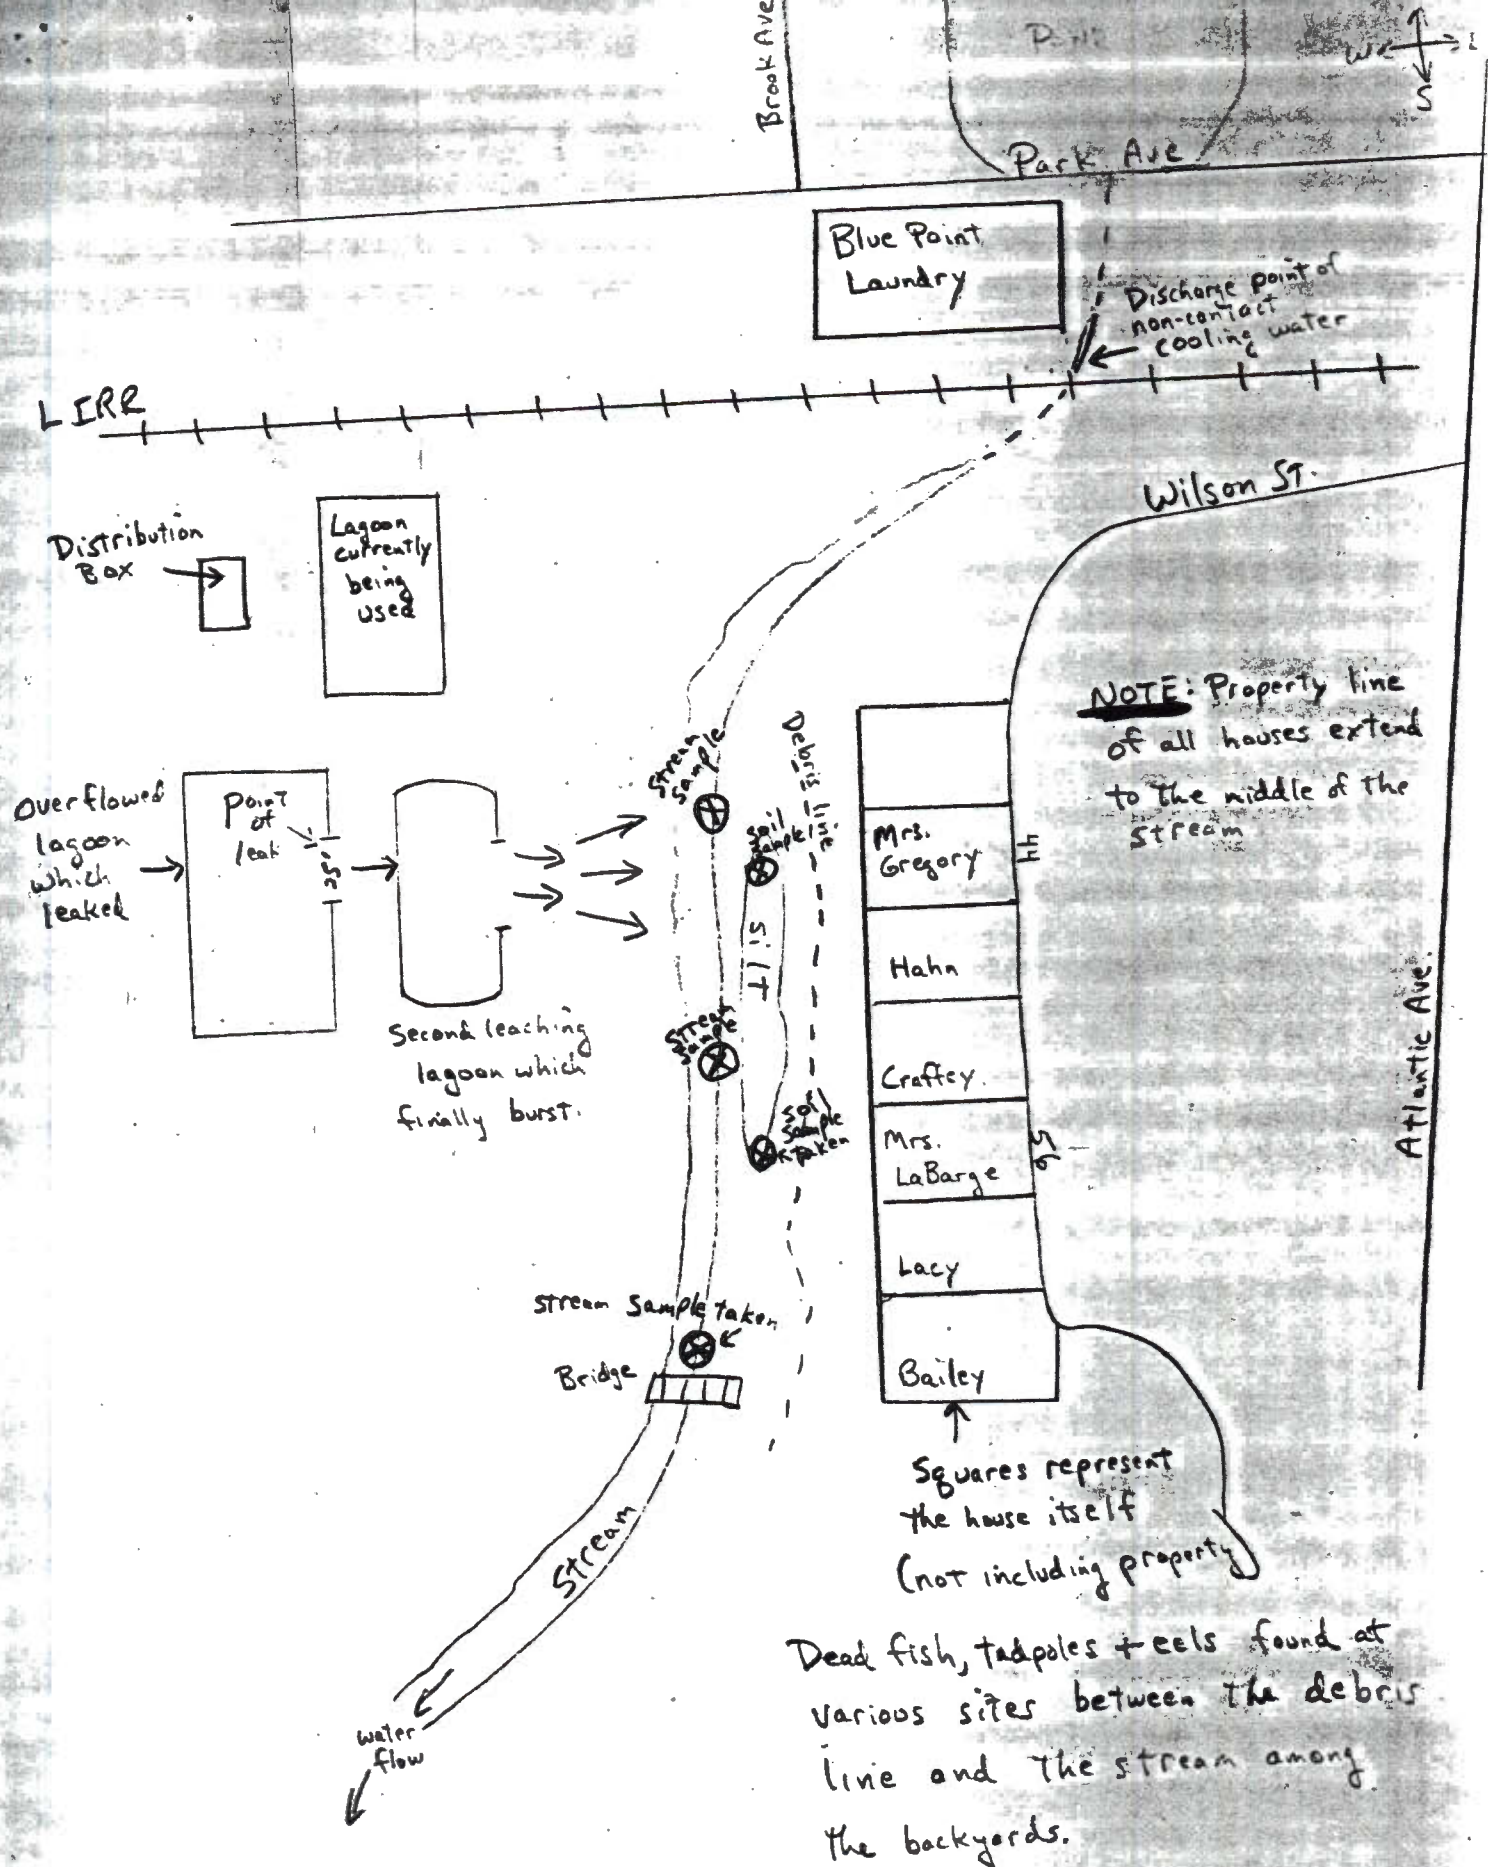 Brook Ave
W
S
Park Ave
Blue Point
Laundry
Discharge point of
non-contact
cooling water
LIRR
Wilson ST.
Distribution
Box
Lagoon
currently
being
used
NOTE: Property line
of all houses extend
to the middle of the
stream
Overflowed
lagoon
which
leaked
Point
of
leak
Second leaching
lagoon which
finally burst.
Stream
sample
Soil
sample
Debris line
Silt
Stream
sample
Soil
sample
taken
Mrs.
Gregory
44
Hahn
Craffey
Mrs.
LaBarge
56
Lacy
Bailey
Atlantic Ave.
stream sample taken
Bridge
Squares represent
the house itself
(not including property)
Stream
water
flow
Dead fish, tadpoles + eels found at
various sites between the debris
line and the stream among
the backyards.